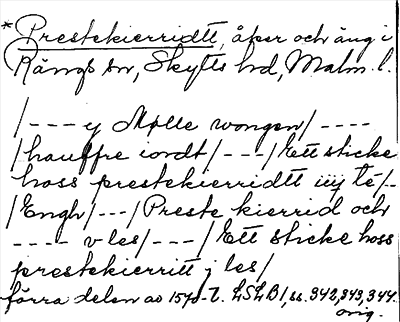 * Prestekierridtt, åker och äng i
Rängs sn, Skytts hd, Malm. l.
/---- y Mølle wongen/----
/hauffre iordt/---/Ett sticke
hoss prestekierridtt iiij te/--
/Engh/---/Preste kierrid och
---- v les/---/Ett sticke hoss
prestekierritt j les/
förra delen av 1570-t. LSLB1, ss. 342, 343, 344.
orig.